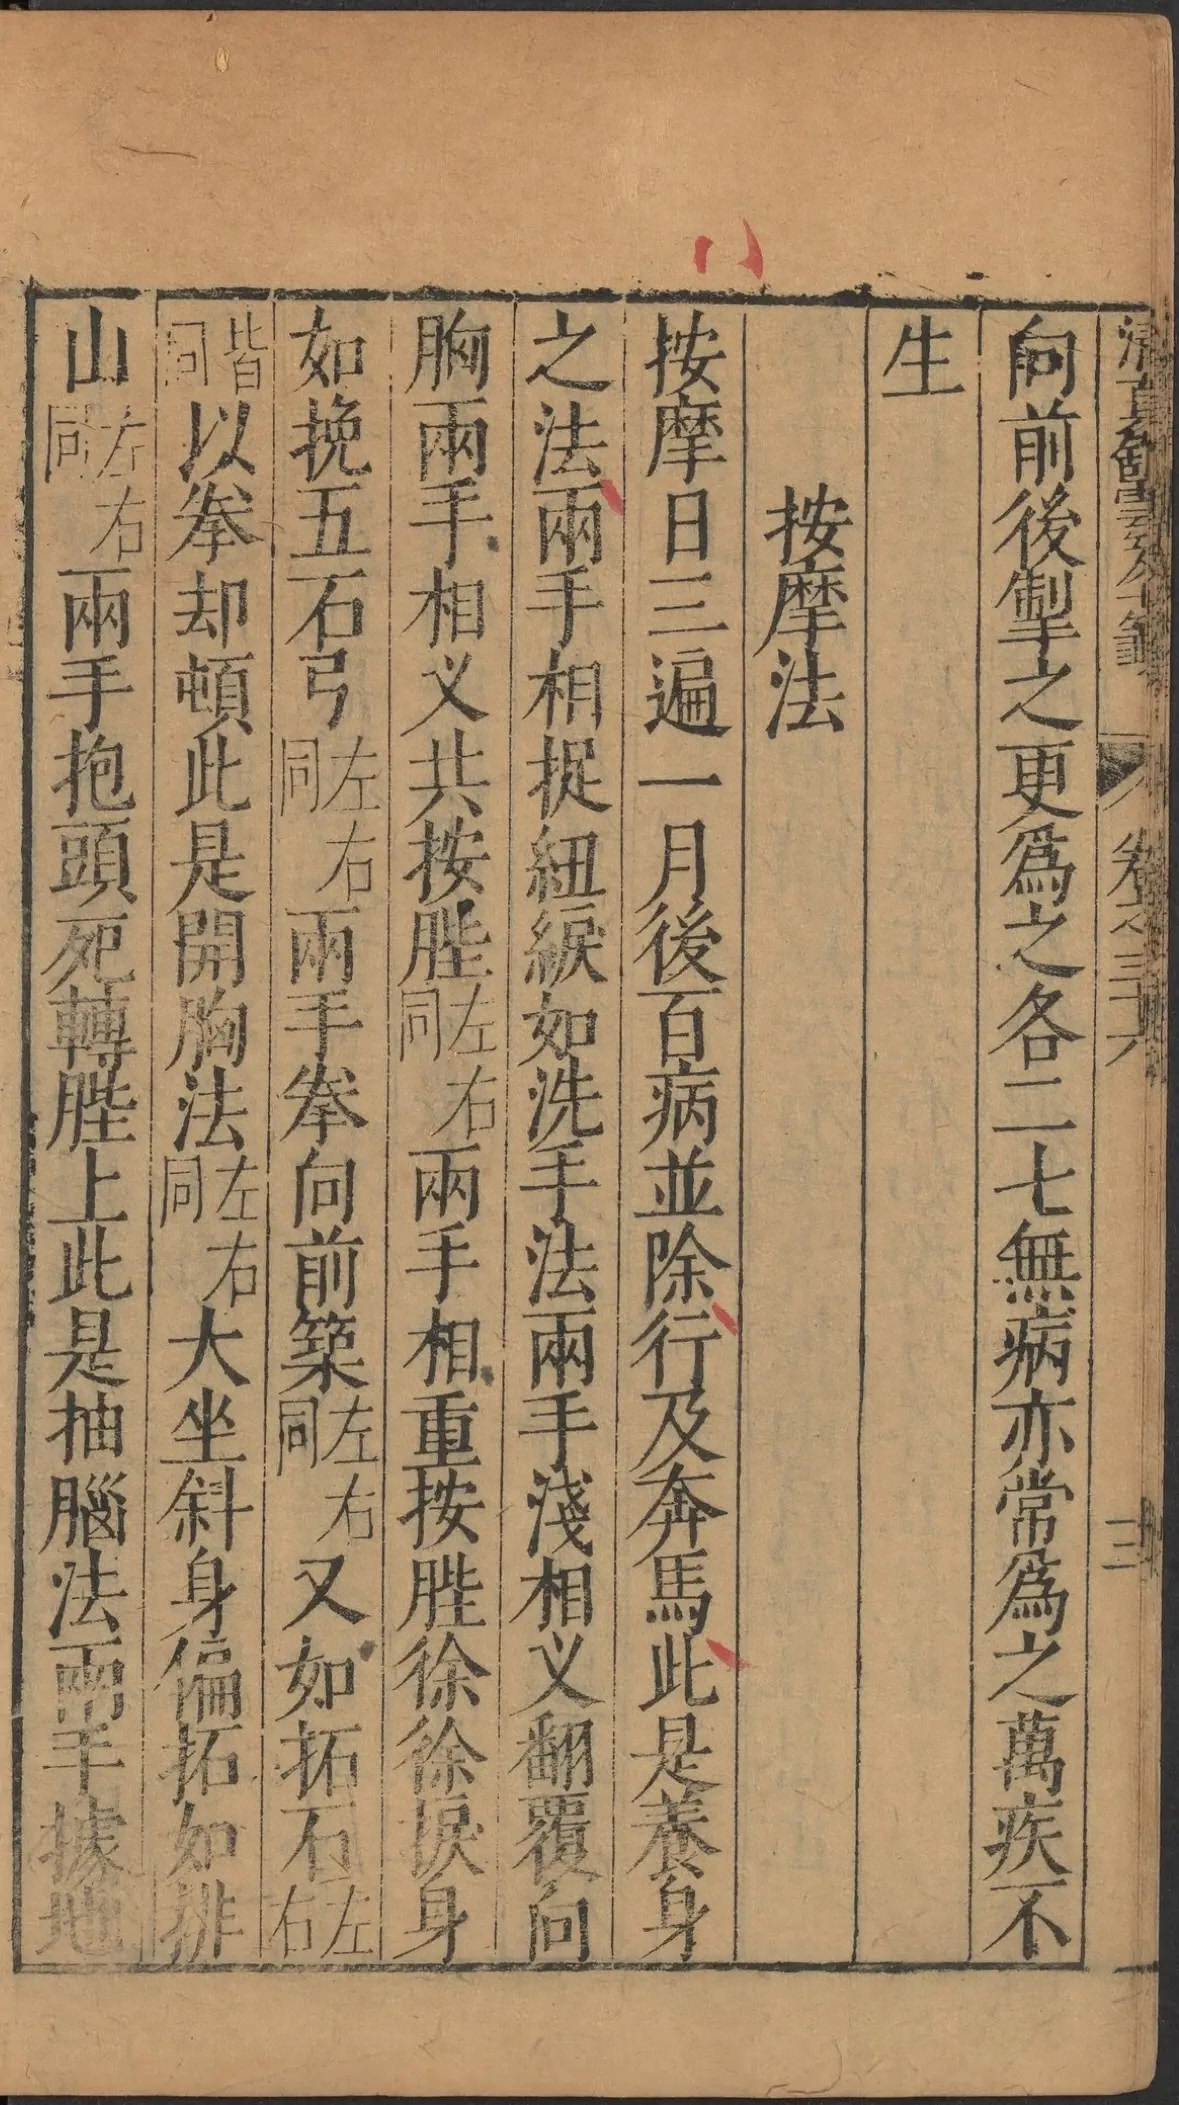 清眞館雲笈七籤 卷之三十六 三
向前後掣之更爲之各二七無病亦常爲之萬疾不
生
按摩法
按摩日三遍一月後百病並除行及奔馬此是養身
之法兩手相捉紐綟如洗手法兩手淺相义翻覆向
胸兩手相义共按胜左右同兩手相重按胜徐徐捩身
如挽五石弓左右同兩手拳向前築左右同又如拓石左右
皆同以拳却頓此是開胸法左右同大坐斜身偏拓如排
山左右同兩手抱頭宛轉胜上此是抽腦法兩手據地